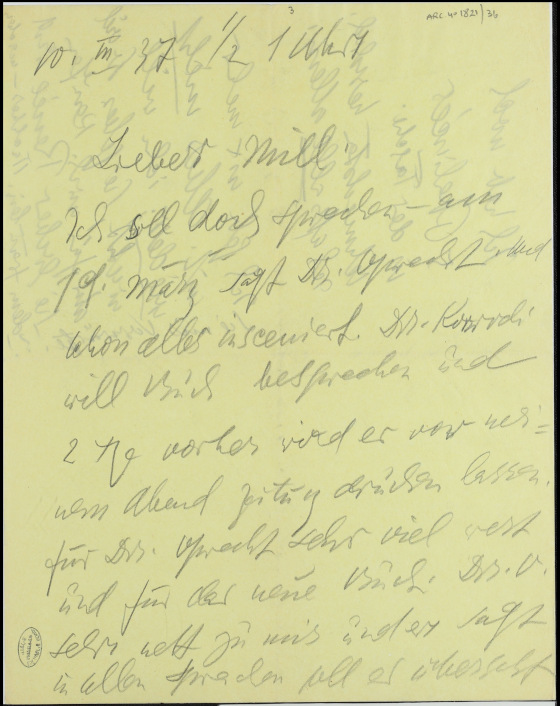 3
ARC. 4° 1821/36
10. III 37 1/2 1 Uhr
Lieber Mill.
Ich soll doch sprechen – am
19. März sagt Dr. Oprecht und
schon alles insceniert. Dr. Korrodi
will Buch besprechen und
2 Tge vorher wird er vor mei=
nem Abend Zeitung drucken lassen.
für Dr. Oprecht sehr viel wert
und für das neue Buch. Dr. O.
sehr nett zu mir und er sagt
in allen Sprachen soll es übersetzt